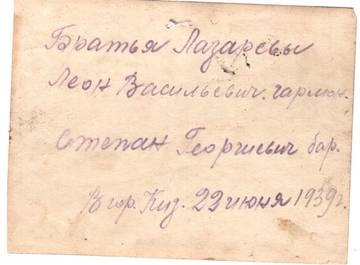 Братья Лазаревы
Леон Васильевич. гармон.
Степан Георгиевич бар.
В гор. Киз. 22 июня 1939 г.